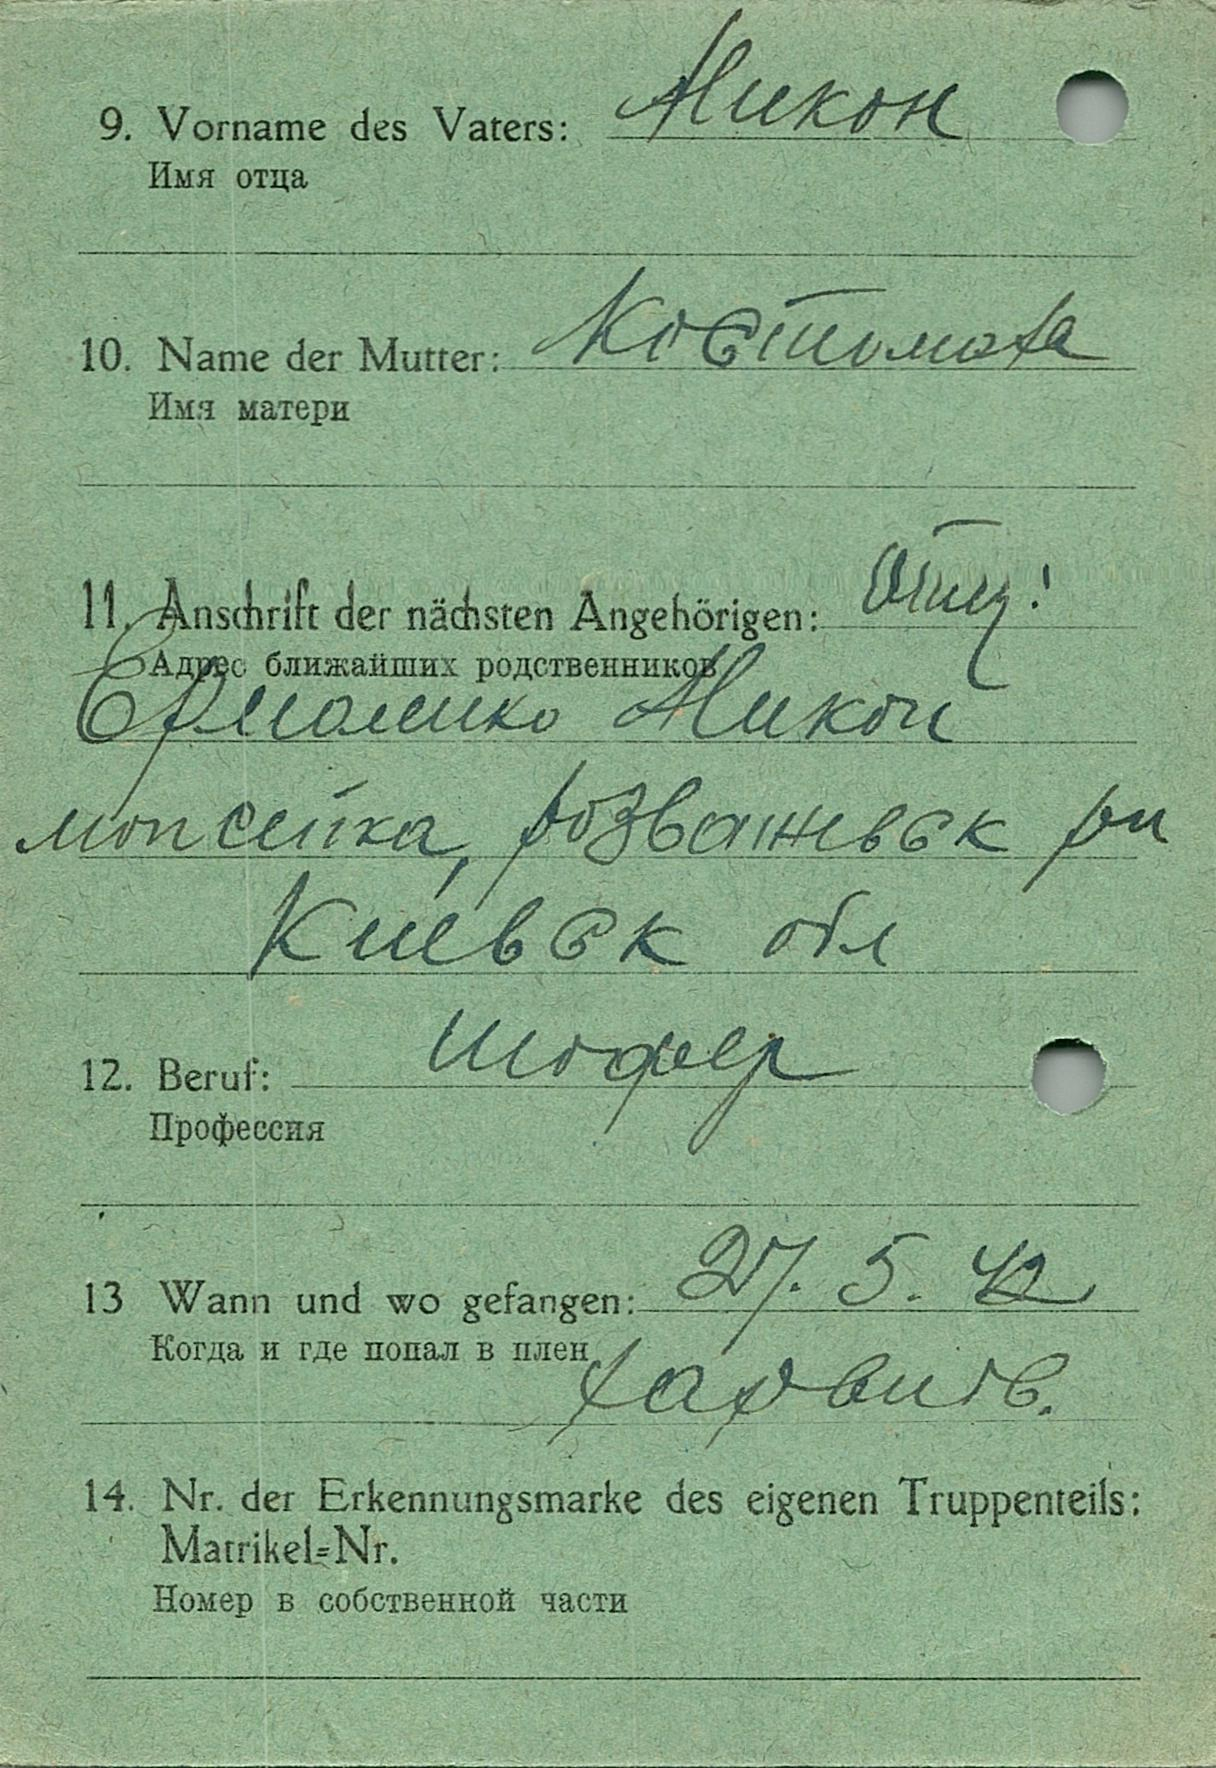 9. Vorname des Vaters: Микон
Имя отца
10. Name der Mutter: Костомаха
Имя матери
11. Anschrift der nächsten Angehörigen: Отец!
Адрес ближайших родственников
Микон
розважевск рн
Киевск обл
12. Beruf: шофер
Профессия
13 Wann und wo gefangen: 27. 5. 42
Когда и где попал в плен
14. Nr. der Erkennungsmarke des eigenen Truppenteils:
Matrikel=Nr.
Номер в собственной части